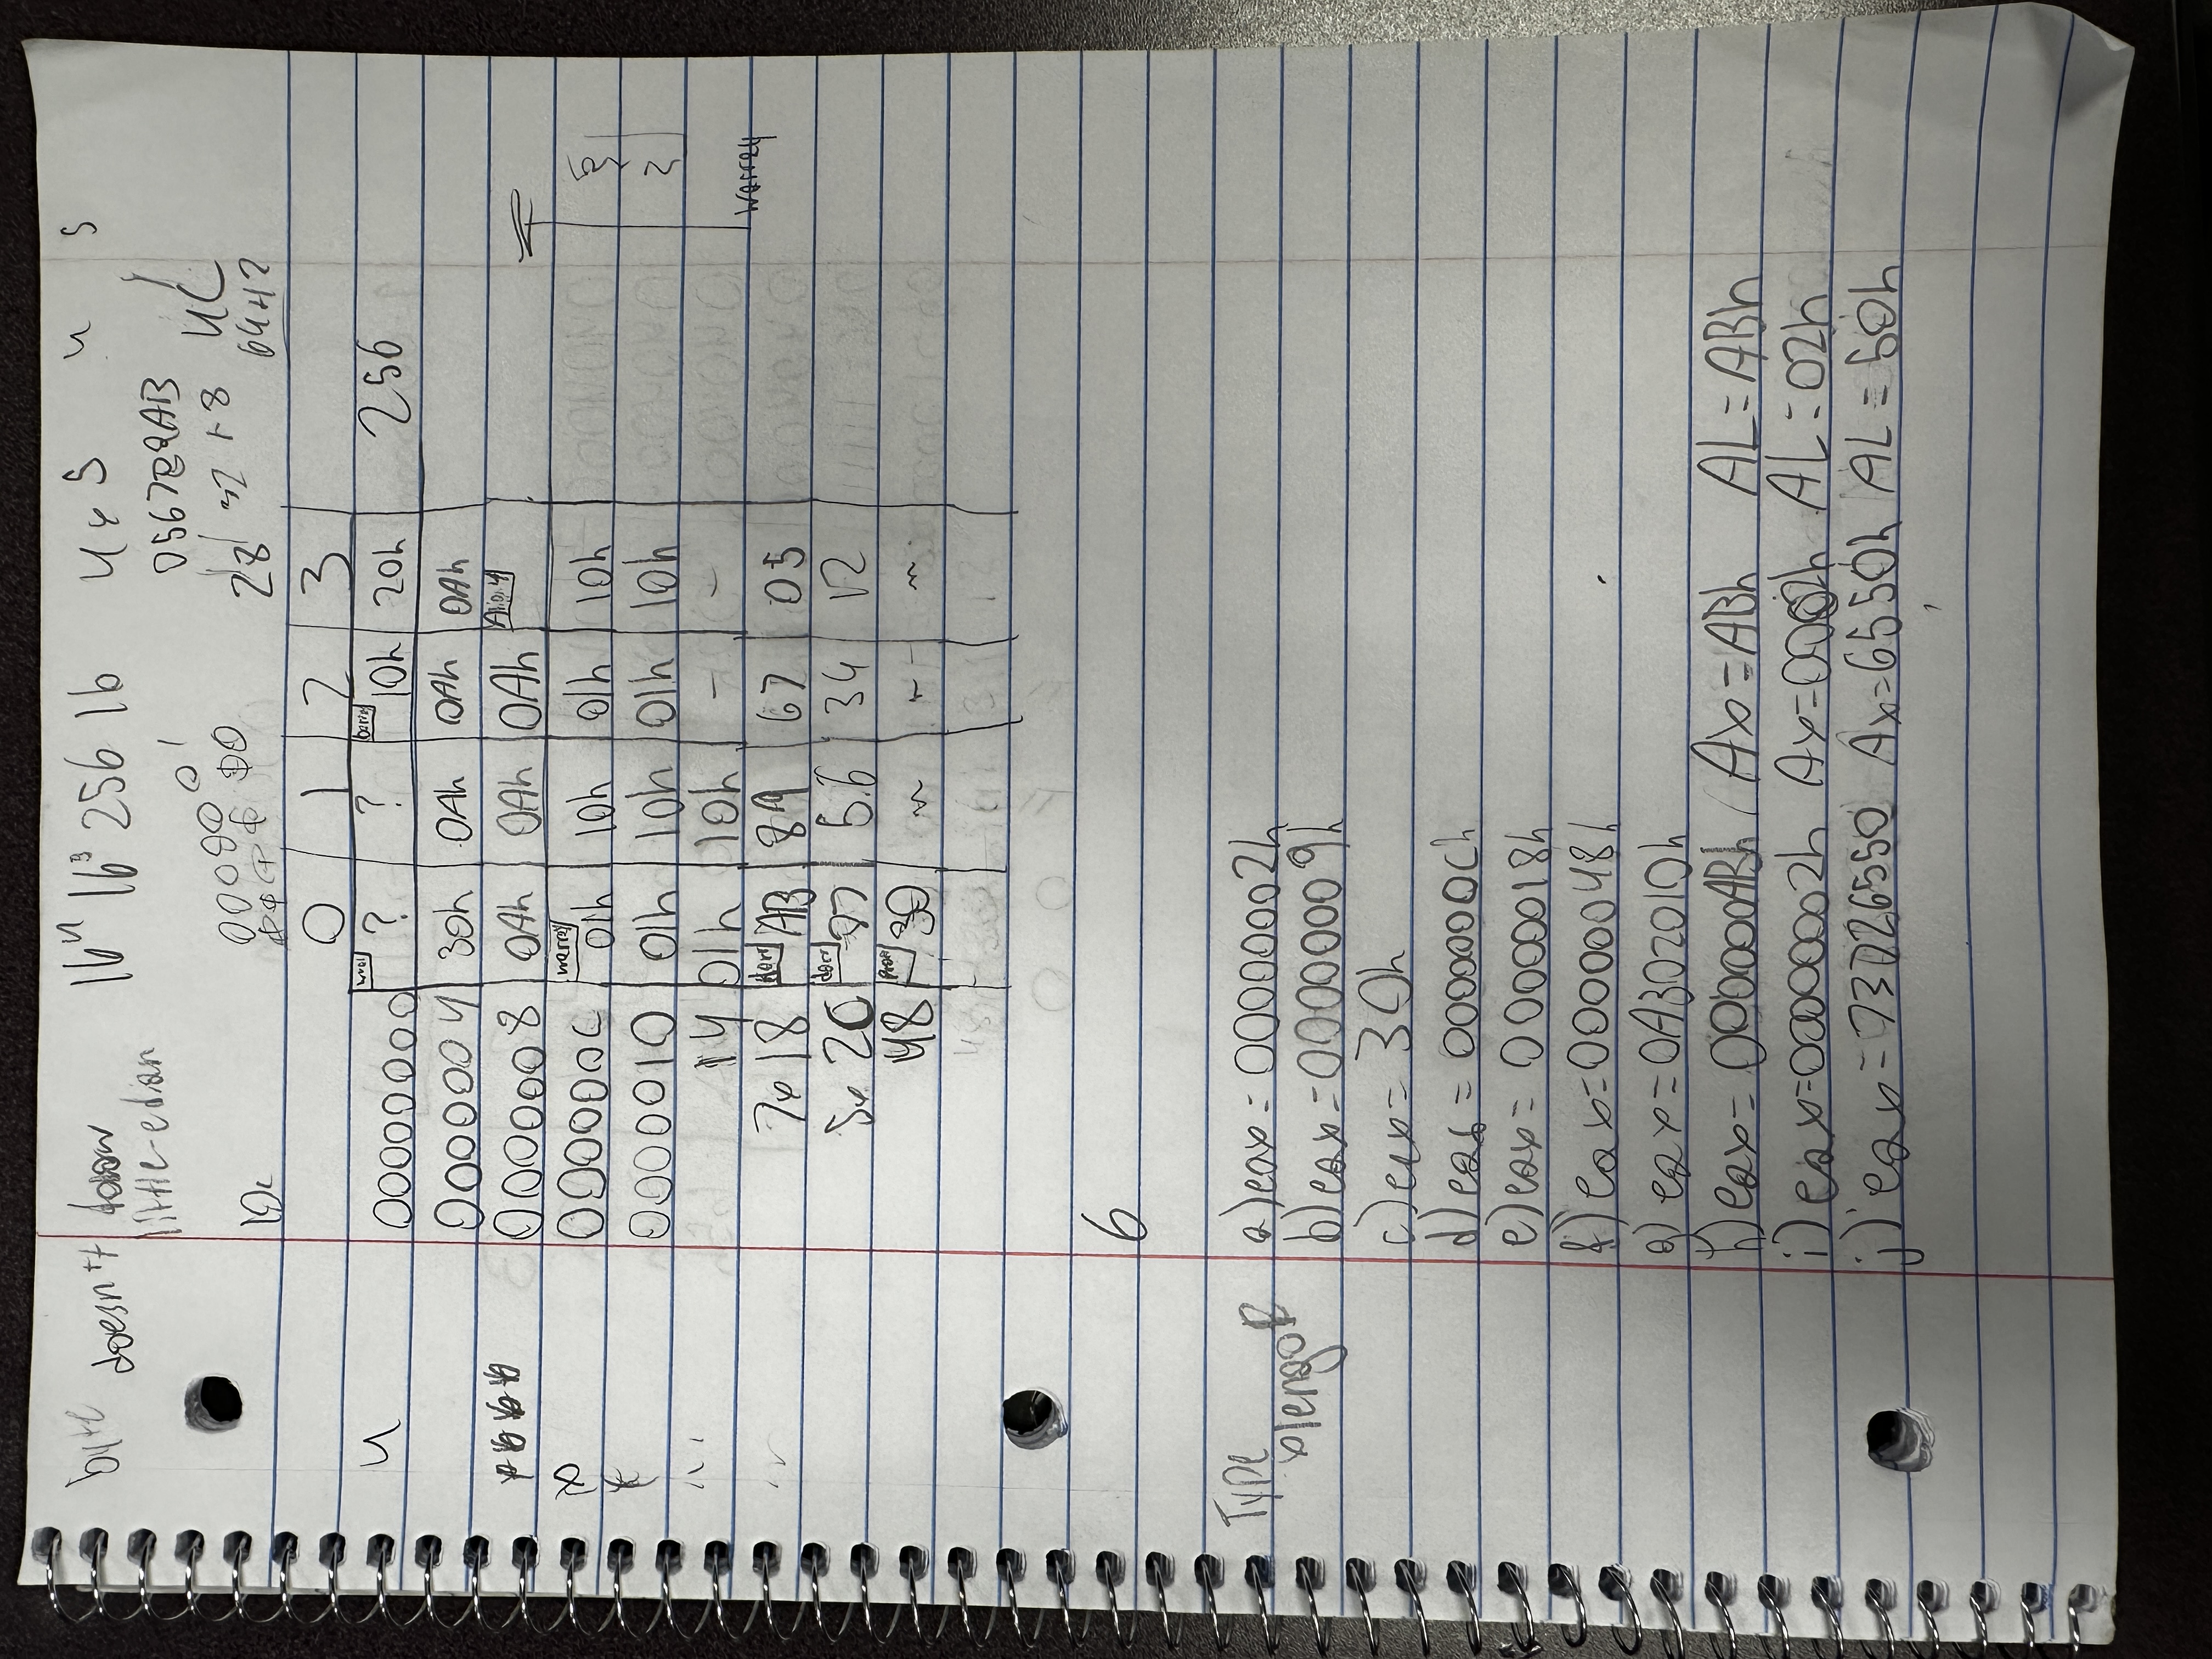 byte doesn't follow 16⁴ 16³ 256 16 4x5 4 5
little-edian 056789AB
28 32+8 4C
64+12
0 1 2 3
4 00000000 ? ? barray 10h 20h 256
0000004 30h 0Ah 0Ah 0Ah
0000008 0Ah 0Ah 0Ah Align 4
000000C warray 01h 10h 01h 10h
0000010 01h 10h 01h 10h
14 01h 10h - -
warray
7x 18 darr AB 89 67 05
5x 20 darr 56 34 12
48 30
6
Type
a) eax = 00000002h
b) eax = 00000009h
c) eax = 30h
d) eax = 0000000Ch
e) eax = 00000018h
f) eax = 00000048h
g) eax = 0A302010h
h) eax = 000000ABh Ax = ABh AL = ABh
i) eax = 00000002h Ax = 0002h AL = 02h
j) eax = 73726550 Ax = 6550h AL = 50h